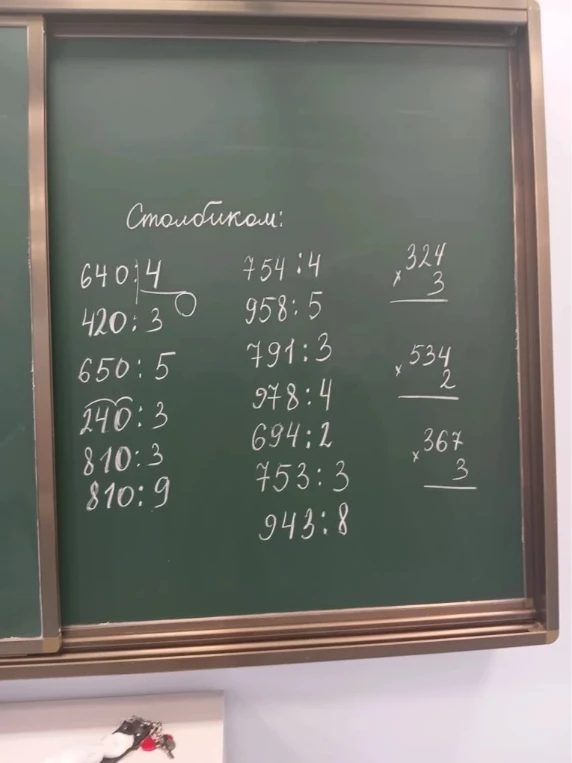 Столбиком:
640:4
420:3
650:5
240:3
810:3
810:9
754:4
958:5
791:3
978:4
694:2
753:3
943:8
×324
3
×534
2
×367
3